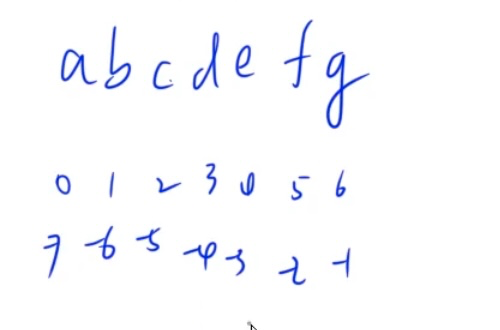 abcdefg
0 1 2 3 4 5 6
-7 -6 -5 -4 -3 -2 -1